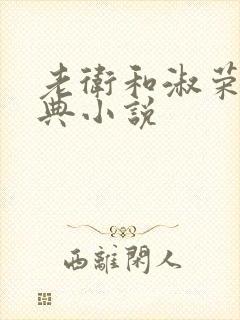 老衛和淑荣
典小说
西離閑人